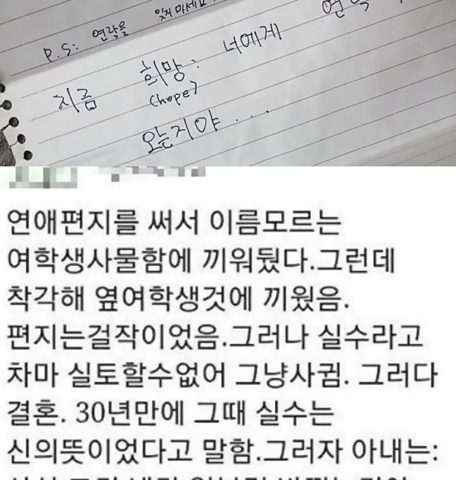 잊지 마세요
P.S: 연락을
너에게
희망:
지금 (hope)
오는지야...
연애편지를 써서 이름모르는
여학생사물함에 끼워뒀다.그런데
착각해 옆여학생것에 끼웠음.
편지는걸작이었음.그러나 실수라고
차마 실토할수없어 그냥사귐. 그러다
결혼. 30년만에 그때 실수는
신의뜻이었다고 말함.그러자 아내는: